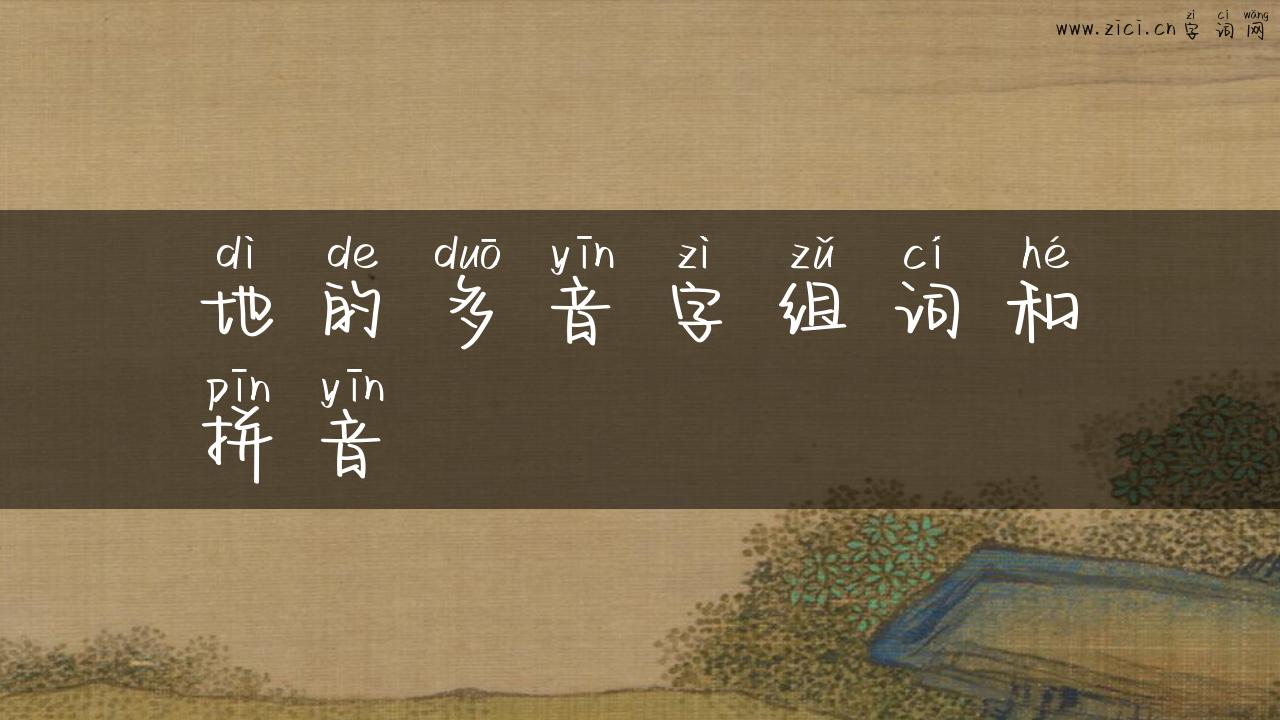 zì cí wǎng
www.zici.cn 字词网
dì de duō yīn zì zǔ cí hé
地的多音字组词和
pīn yīn
拼音